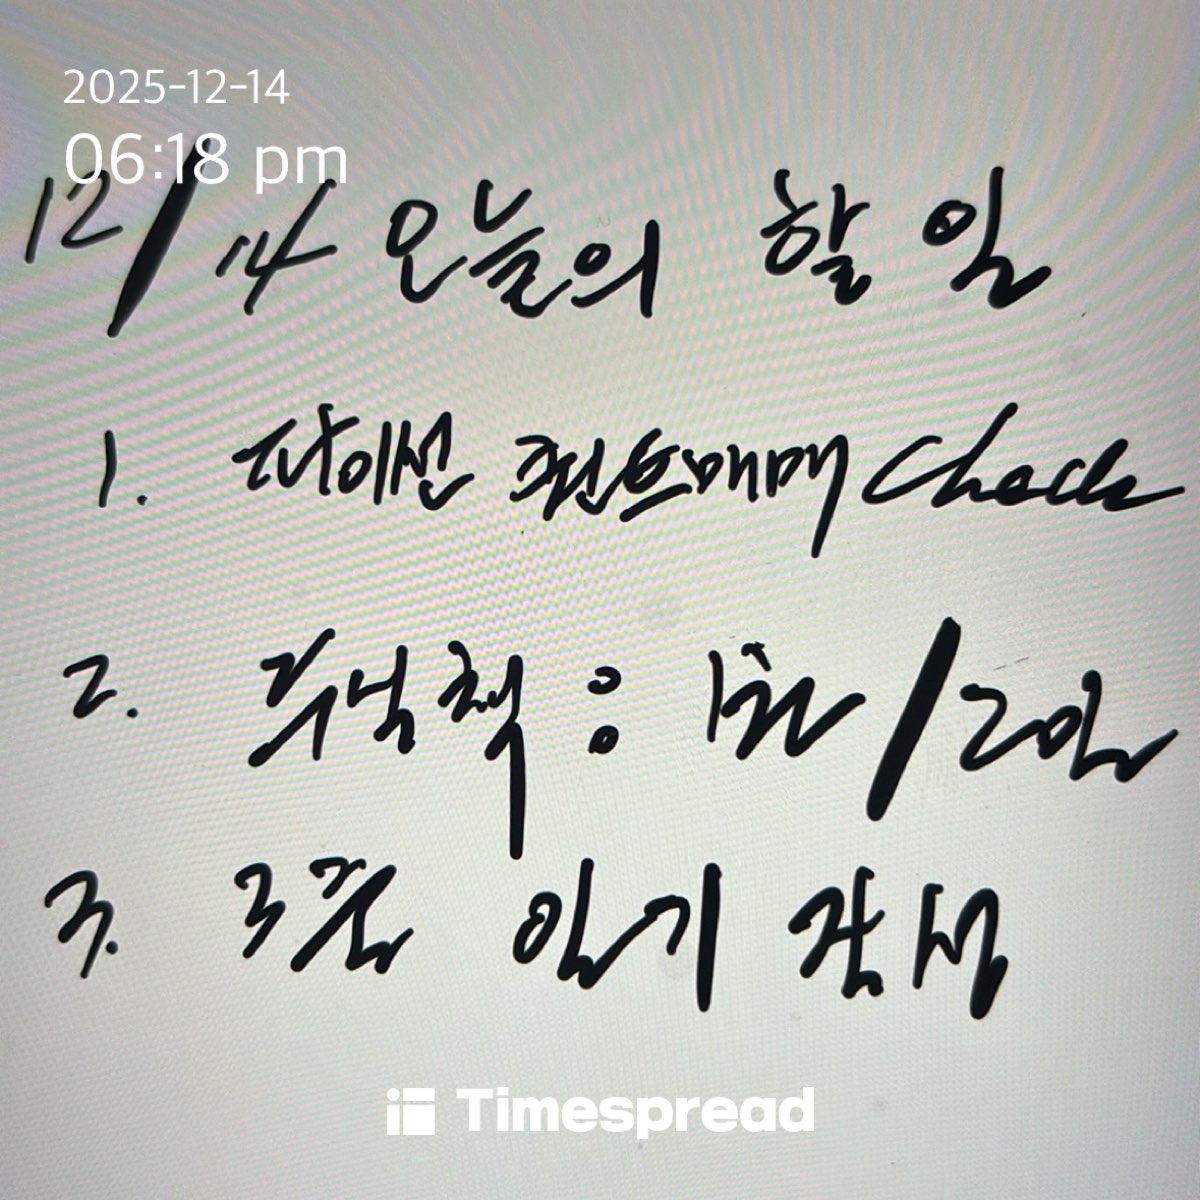 2025-12-14
06:18 pm
12/14 오늘의 할 일
1. 파이썬 퀀트매매 Check
2. 주식책 : 1권 / 2일
3. 3줄 일기 작성
Timespread